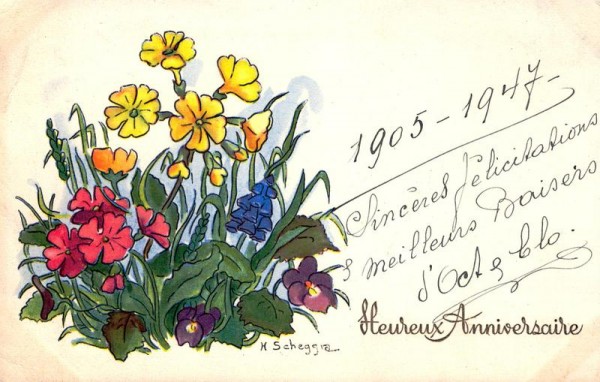 1905-1947-
Sincères Félicitations
& meilleurs Baisers
d'Oct & Clo.
Heureux Anniversaire
H Scheggia